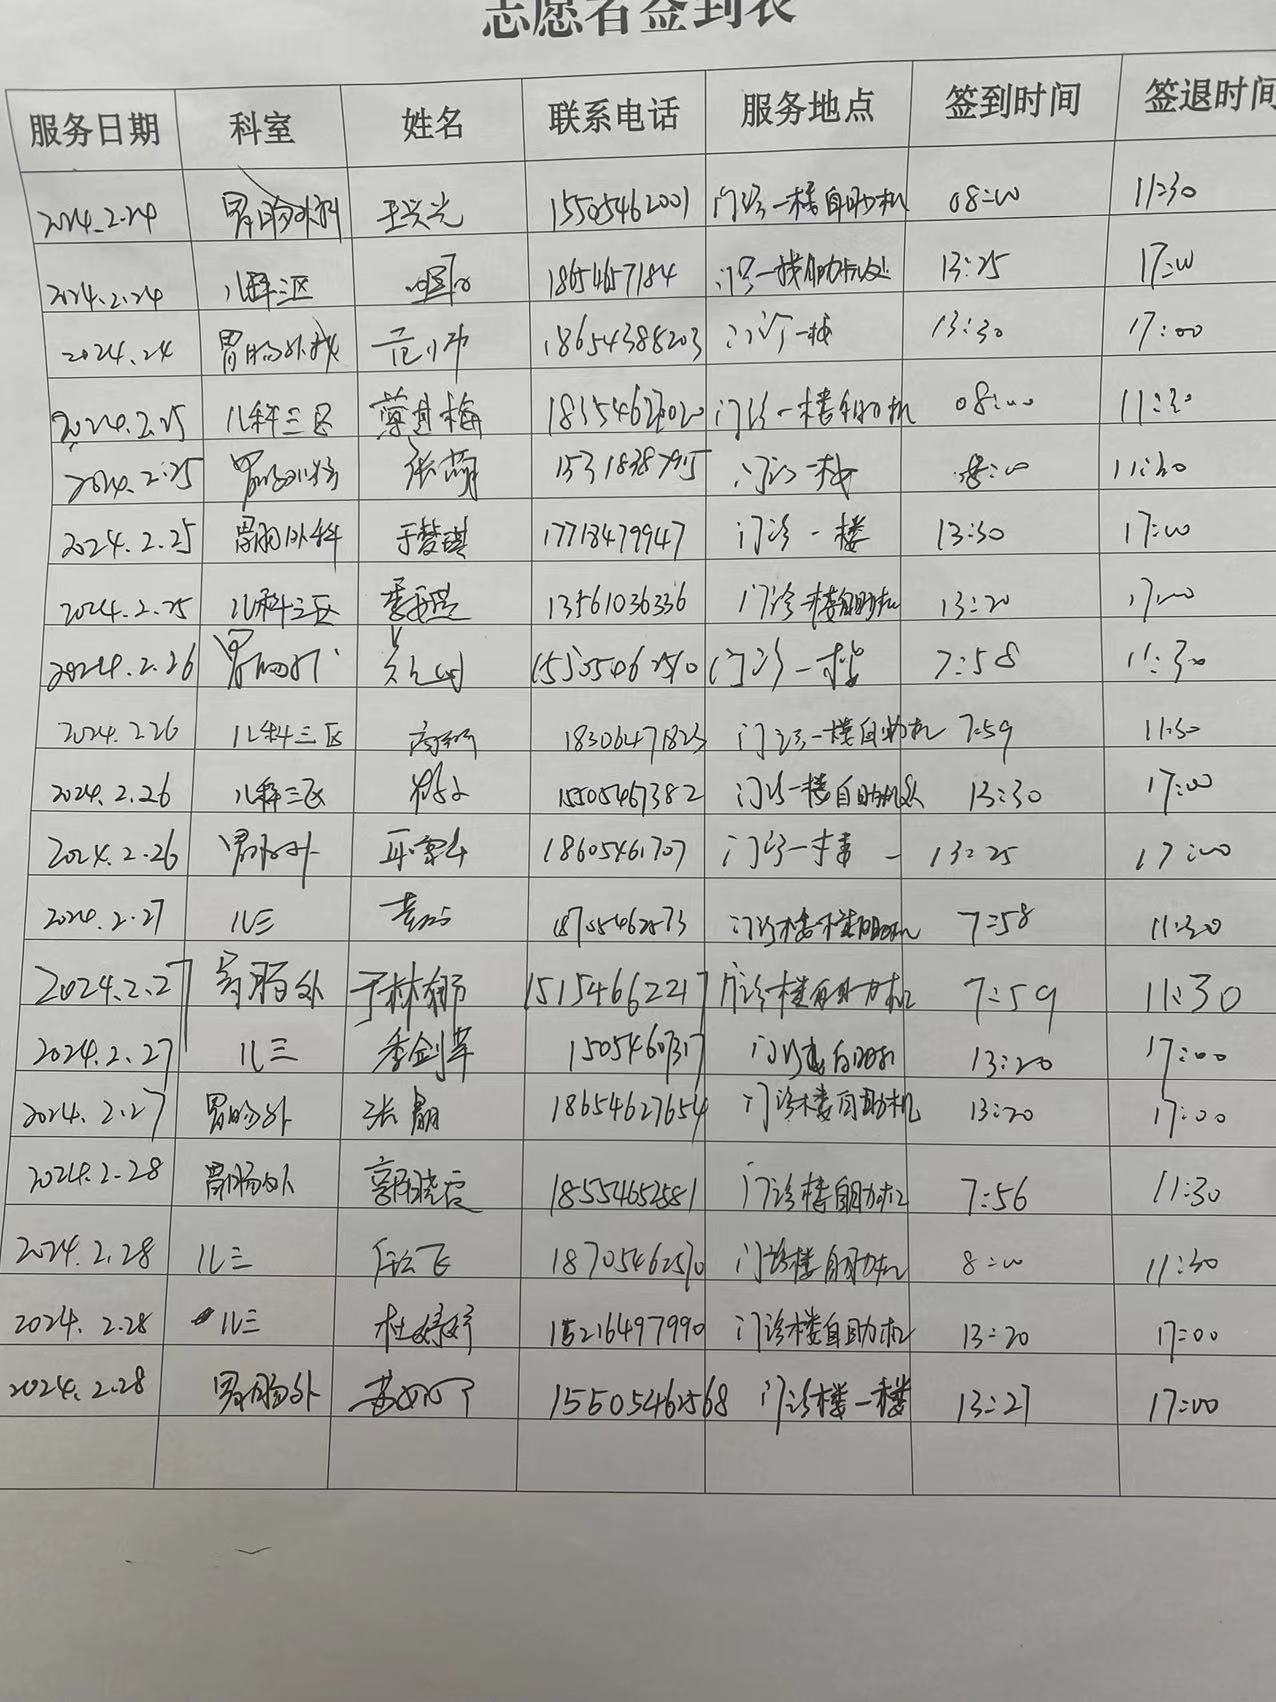 志愿者签到表
服务日期 科室 姓名 联系电话 服务地点 签到时间 签退时间
2024.2.24 胃肠外科 王兴光 15505462001 门诊一楼自助机 08:00 11:30
2024.2.24 儿科三区 1865467184 门诊一楼自助机处 13:25 17:00
2024.24 胃肠外科 范小冲 18654388203 门诊一楼 13:30 17:00
2024.2.25 儿科三区 薄其梅 门诊一楼自助机 08:00 11:30
2024.2.25 胃肠外科 张萌 门诊一楼 8:00 11:30
2024.2.25 胃肠外科 于梦琪 17718479947 门诊一楼 13:30 17:00
2024.2.25 儿科三区 13561036336 门诊一楼自助机 13:20 17:00
2024.2.26 胃肠外 门诊一楼 7:58 11:30
2024.2.26 儿科三区 18306471823 门诊一楼自助机 7:59 11:30
2024.2.26 儿科三区 15505467382 门诊一楼自助机处 13:30 17:00
2024.2.26 胃肠外 18605461707 门诊一楼 13:25 17:00
2024.2.27 儿三 18705462573 7:58 11:30
2024.2.27 胃肠外 于林娜 15154662217 门诊楼自助机 7:59 11:30
2024.2.27 儿三 季剑苹 15054607317 13:20 17:00
2024.2.27 胃肠外 张 18654627654 门诊楼自助机 13:20 17:00
2024.2.28 胃肠外 郭晓霞 18554652581 门诊楼自助机 7:56 11:30
2024.2.28 儿三 任云飞 18705462570 门诊楼自助机 8:00 11:30
2024.2.28 儿三 杜婷婷 15216497990 门诊楼自助机 13:20 17:00
2024.2.28 胃肠外 15505462568 门诊楼一楼 13:27 17:00